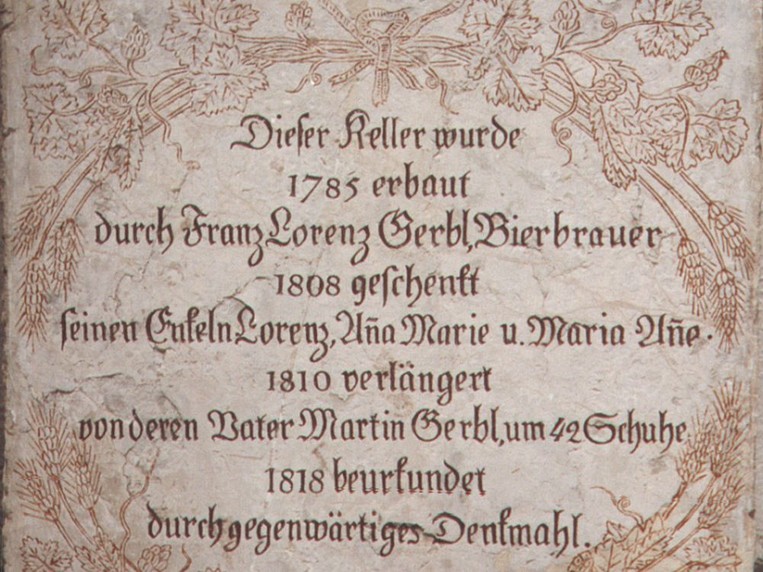 Dieſer Keller wurde
1785 erbaut
durch Franz Lorenz Gerbl, Bierbrauer
1808 geſchenkt
ſeinen Enkeln Lorenz, Aña Marie u. Maria Añe.
1810 verlängert
von deren Vater Martin Gerbl, um 42 Schuhe
1818 beurkundet
durch gegenwärtiges Denkmahl.